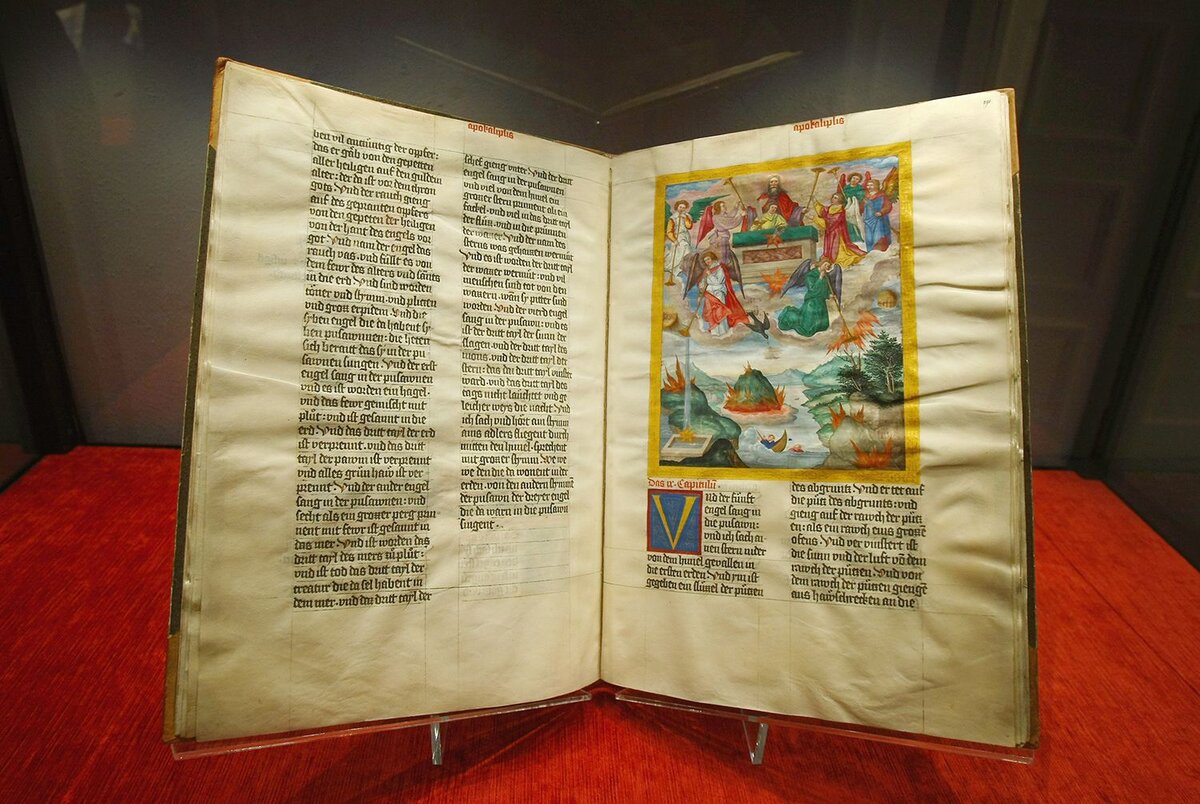 apokalipsis
ben vil anzüntung der opffer:
das er gäb von den gepetten
aller heiligen auf den guldem
alter: der da ist vor dem thron
gots Vnd der rauch gieng
auf des geprantten opffers
von den gepeten der heiligen
von der hant des engels vor
got Vnd nam der engel das
rauch vas. vnd füllt es von
dem fewr des alters vnd sants
in die erd Vnd sind worden
töner vnd stymm. vnd plitzen
vnd gross erpidem Vnd die
syben engel die da habent sy
ben pusawnnen: die heten
sich beraitt das sy in der pu
sawnen sungen Vnd der erst
engel sang in der pusawnen
vnd es ist worden ein hagel.
vnd das fewr gemischt mit
plüt: vnd ist gesannt in die
erd Vnd das drit tayl der erd
ist verprennt. vnd das dritt
tayl der pawm ist verprennt
vnd alles grün haw ist ver
prennt Vnd der ander engel
sang in der pusawnen: vnd
secht als ein grosser perg prin
nent mit fewr ist gesannt in
das mer. Vnd ist worden das
dritt tayl des mers zu plüt:
vnd ist tod das dritt tayl der
creatur die da sel habent in
dem mer. vnd das dritt tayl der
schef gieng vnter Vnd der dritt
engel sang in der pusawnen
vnd viel von dem himel ein
grosser stern prinnent als ein
fackel. vnd viel in das dritt tayl
der flüss. vnd in die prünnen
der wasser Vnd der nam des
sterns was gehaissen wermüt
Vnd es ist worden der dritt tayl
der wasser wermüt: vnd vil
menschen sind tot von den
wassern. wann sy pitter sind
worden Vnd der vierd engel
sang in der pusawn: vnd es
ist der dritt tayl der sunn ge
slagen vnd der dritt tayl des
mons. vnd der dritt tayl der
stern: das der dritt tayl vinster
ward. vnd das dritt tayl des
tags nicht lauchtet vnd ge
leicher weys die nacht Vnd
ich sach vnd hört ain stymm
ains adlers fliegent durch
mitten den himel. sprechent
mit grosser stymm We we
we den die da wonent in der
erden. von den andern stymmen
der pusawn der dreyer engel
die da waren in die pusawn
singent.
apokalipsis
Das ix. Capitulum.
Vnd der fünfft
engel sang in
die pusawn:
vnd ich sach ai
nen stern nider
von dem himel gevallen in
die ersten erden Vnd ym ist
gegeben ein slüssel der pützen
des abgrunts Vnd er tet auf
die pütz des abgrunts: vnd
gieng auf der rawch der pütz
en: als ein rawch eins grossen
ofens Vnd ver vinstert ist
die sunn vnd der luft von dem
rawch der pützen Vnd von
dem rawch der pützen giengen
aus haẅschrecken an die